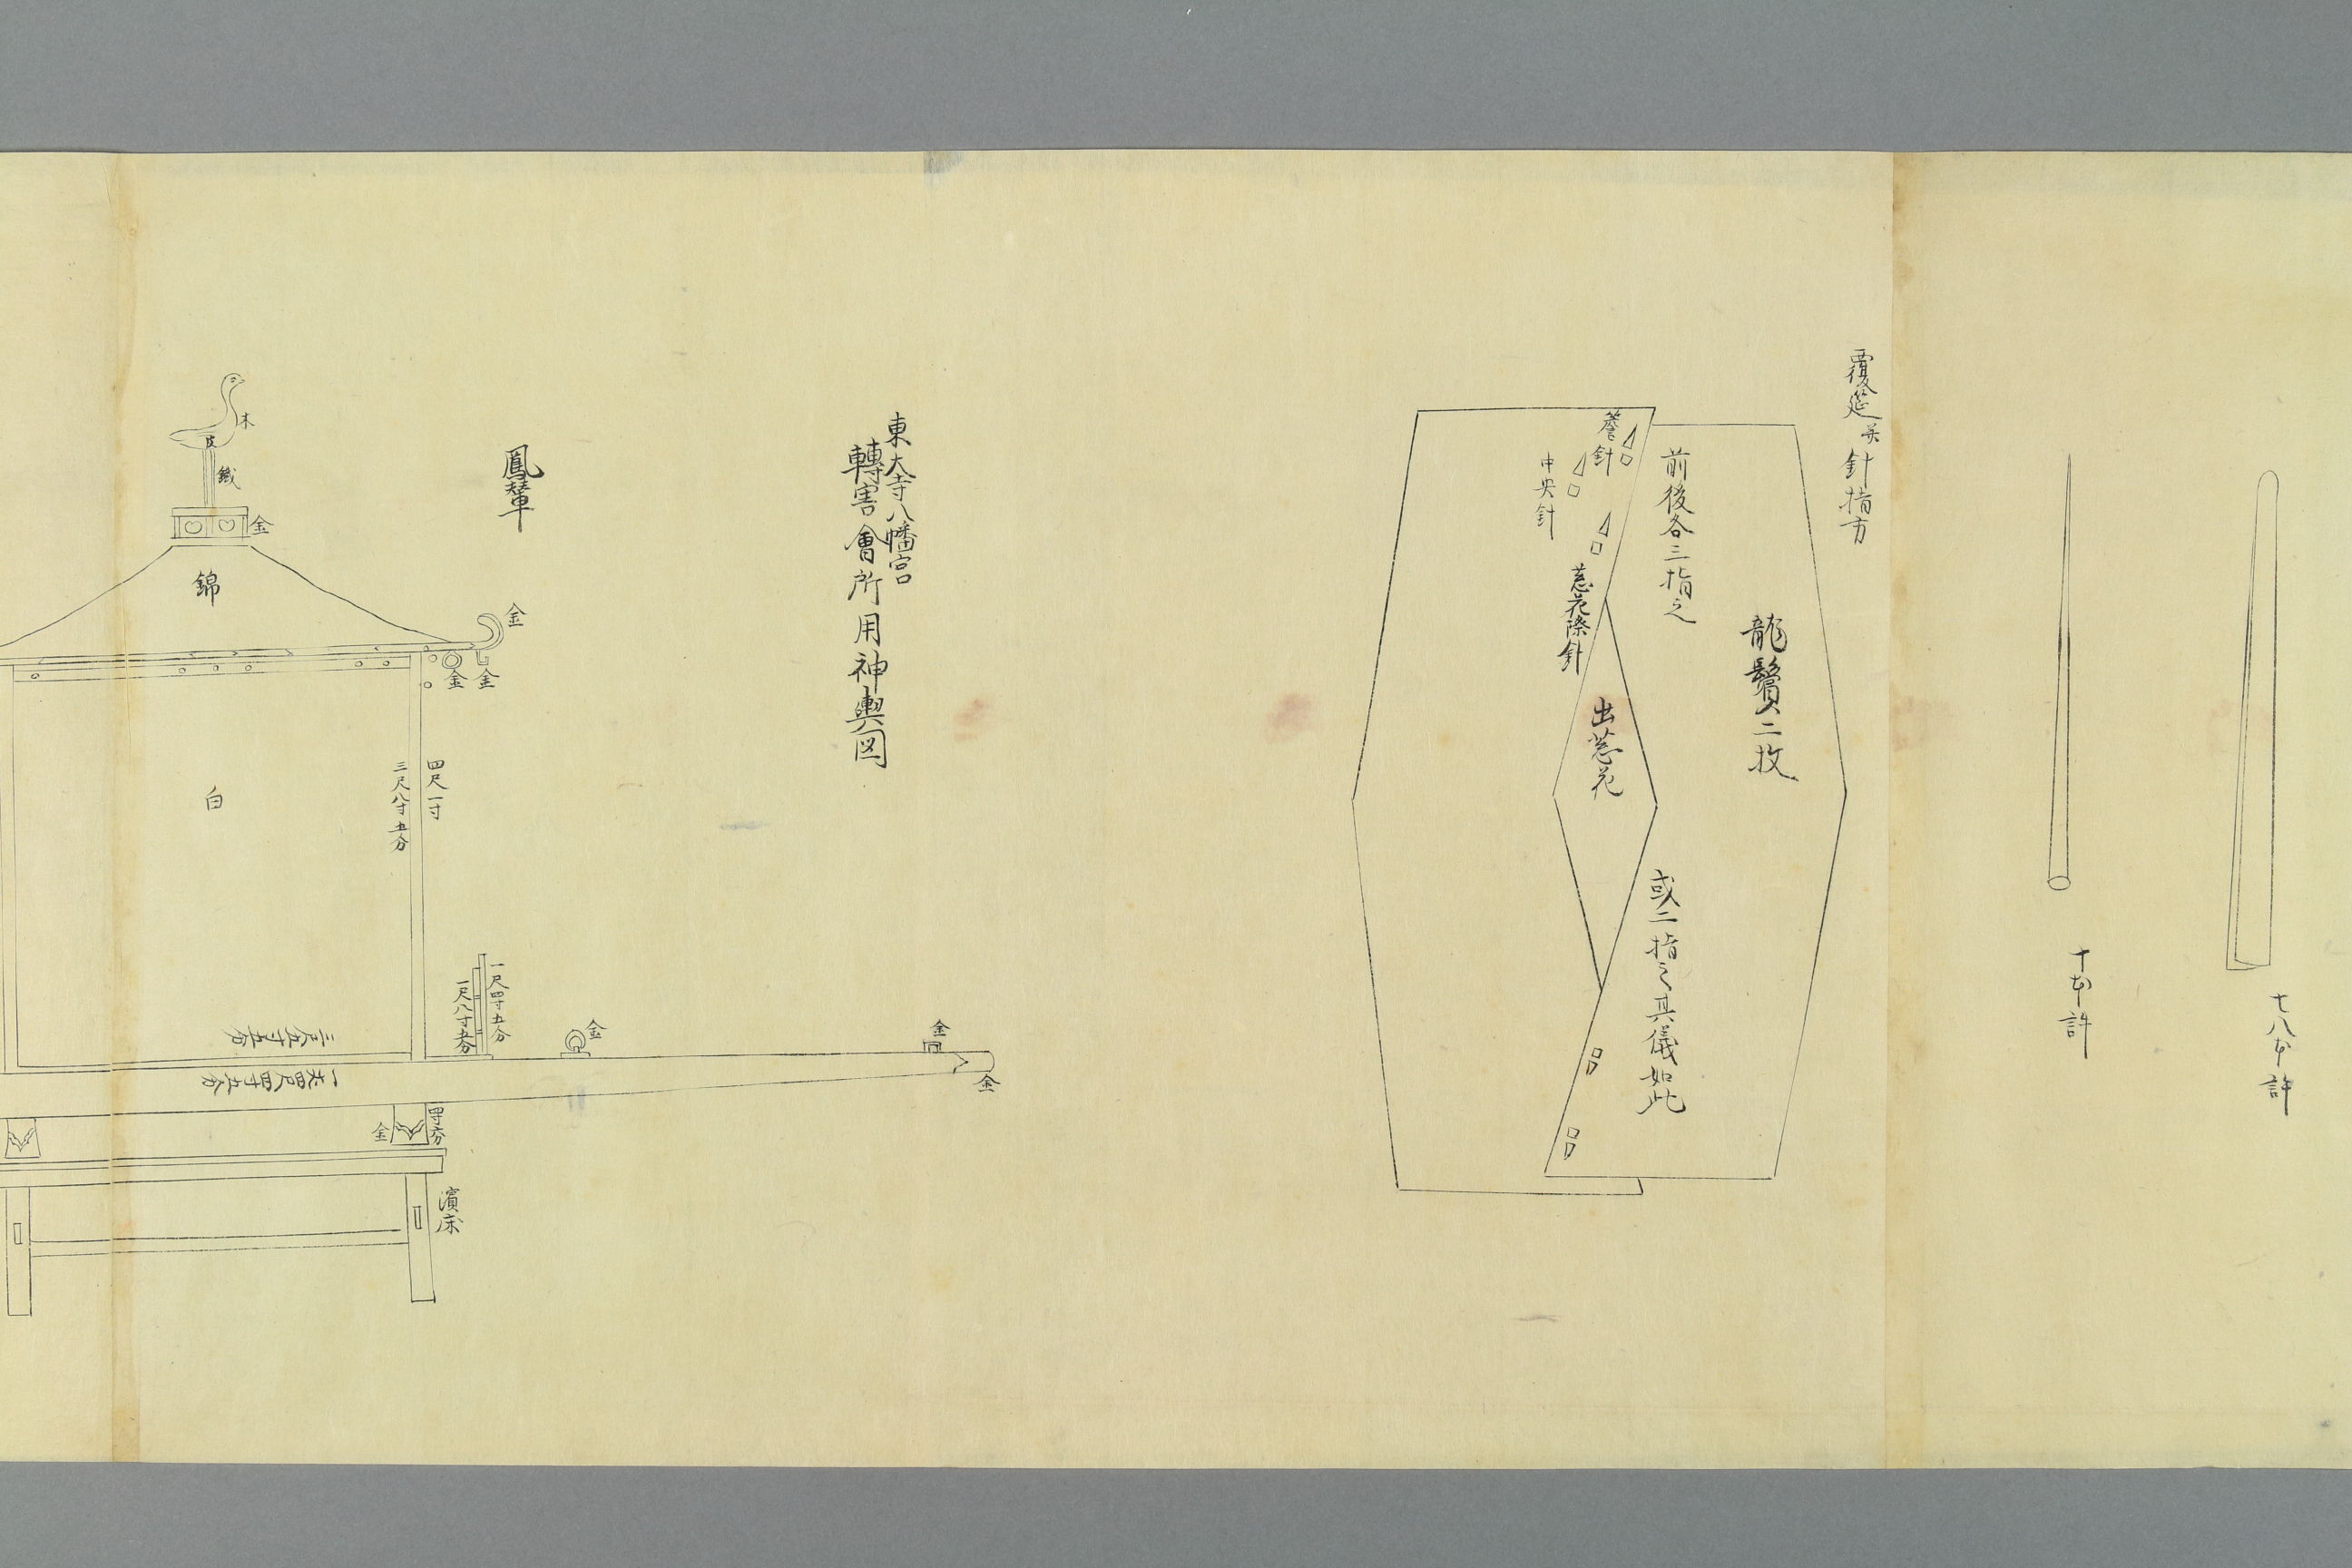 七八本許
十本許
覆筵并針指方
龍鬢二枚
前後各三指之
或二指之其儀如此
簷針
中央針
葱花際針
出葱花
東大寺八幡宮
轉害會所用神輿図
鳳輦
木
鐵
金
錦
金
金
金
四尺一寸
三尺八寸五分
白
一尺四寸五分
一尺八寸五分
金
金
金
三尺五寸五分
一丈四尺四寸五分
金
濱床